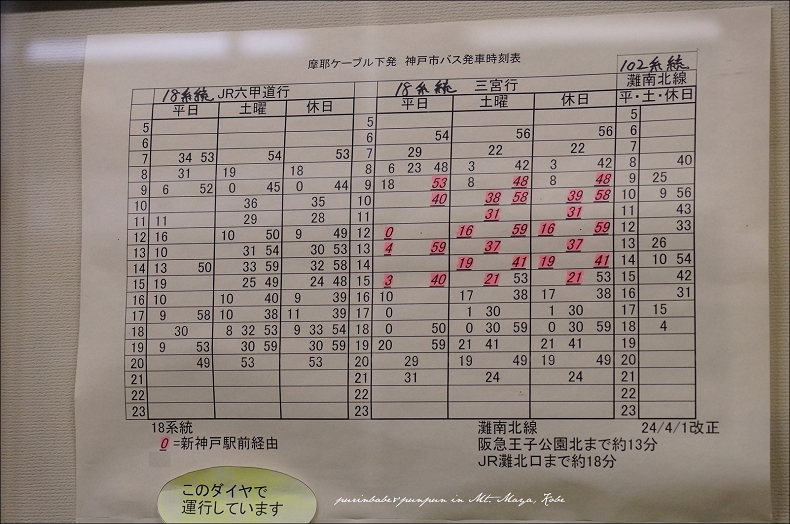 摩耶ケーブル下発 神戸市バス発車時刻表
18系統 JR六甲道行 18系統 三宮行 102系統 灘南北線
平日 土曜 休日 平日 土曜 休日 平・土・休日
5 5 5
6 6 54 56 56 6
7 34 53 54 53 7 29 22 22 7
8 31 19 18 8 6 23 48 3 42 3 42 8 40
9 6 52 0 45 0 44 9 18 53 8 48 8 48 9 25
10 36 35 10 40 38 58 39 58 10 9 56
11 11 29 28 11 31 31 11 43
12 16 10 50 9 49 12 0 16 59 16 59 12 33
13 10 31 54 30 53 13 4 59 37 37 13 26
14 13 50 33 59 32 58 14 19 41 19 41 14 10 54
15 19 25 49 24 48 15 3 40 21 53 21 53 15 42
16 10 10 40 9 39 16 10 17 38 17 38 16 31
17 9 58 10 38 11 39 17 0 1 30 1 30 17 15
18 30 8 32 53 9 33 54 18 0 50 0 30 59 0 30 59 18 4
19 9 53 30 59 30 59 19 20 59 21 41 21 41 19
20 49 53 53 20 29 19 49 19 49 20
21 21 31 24 24 21
22 22 22
23 23 23
18系統 灘南北線 24/4/1改正
0=新神戸駅前経由 阪急王子公園北まで約13分
JR灘北口まで約18分
このダイヤで
運行しています
purinbabe&punpun in Mt. Maya, Kobe